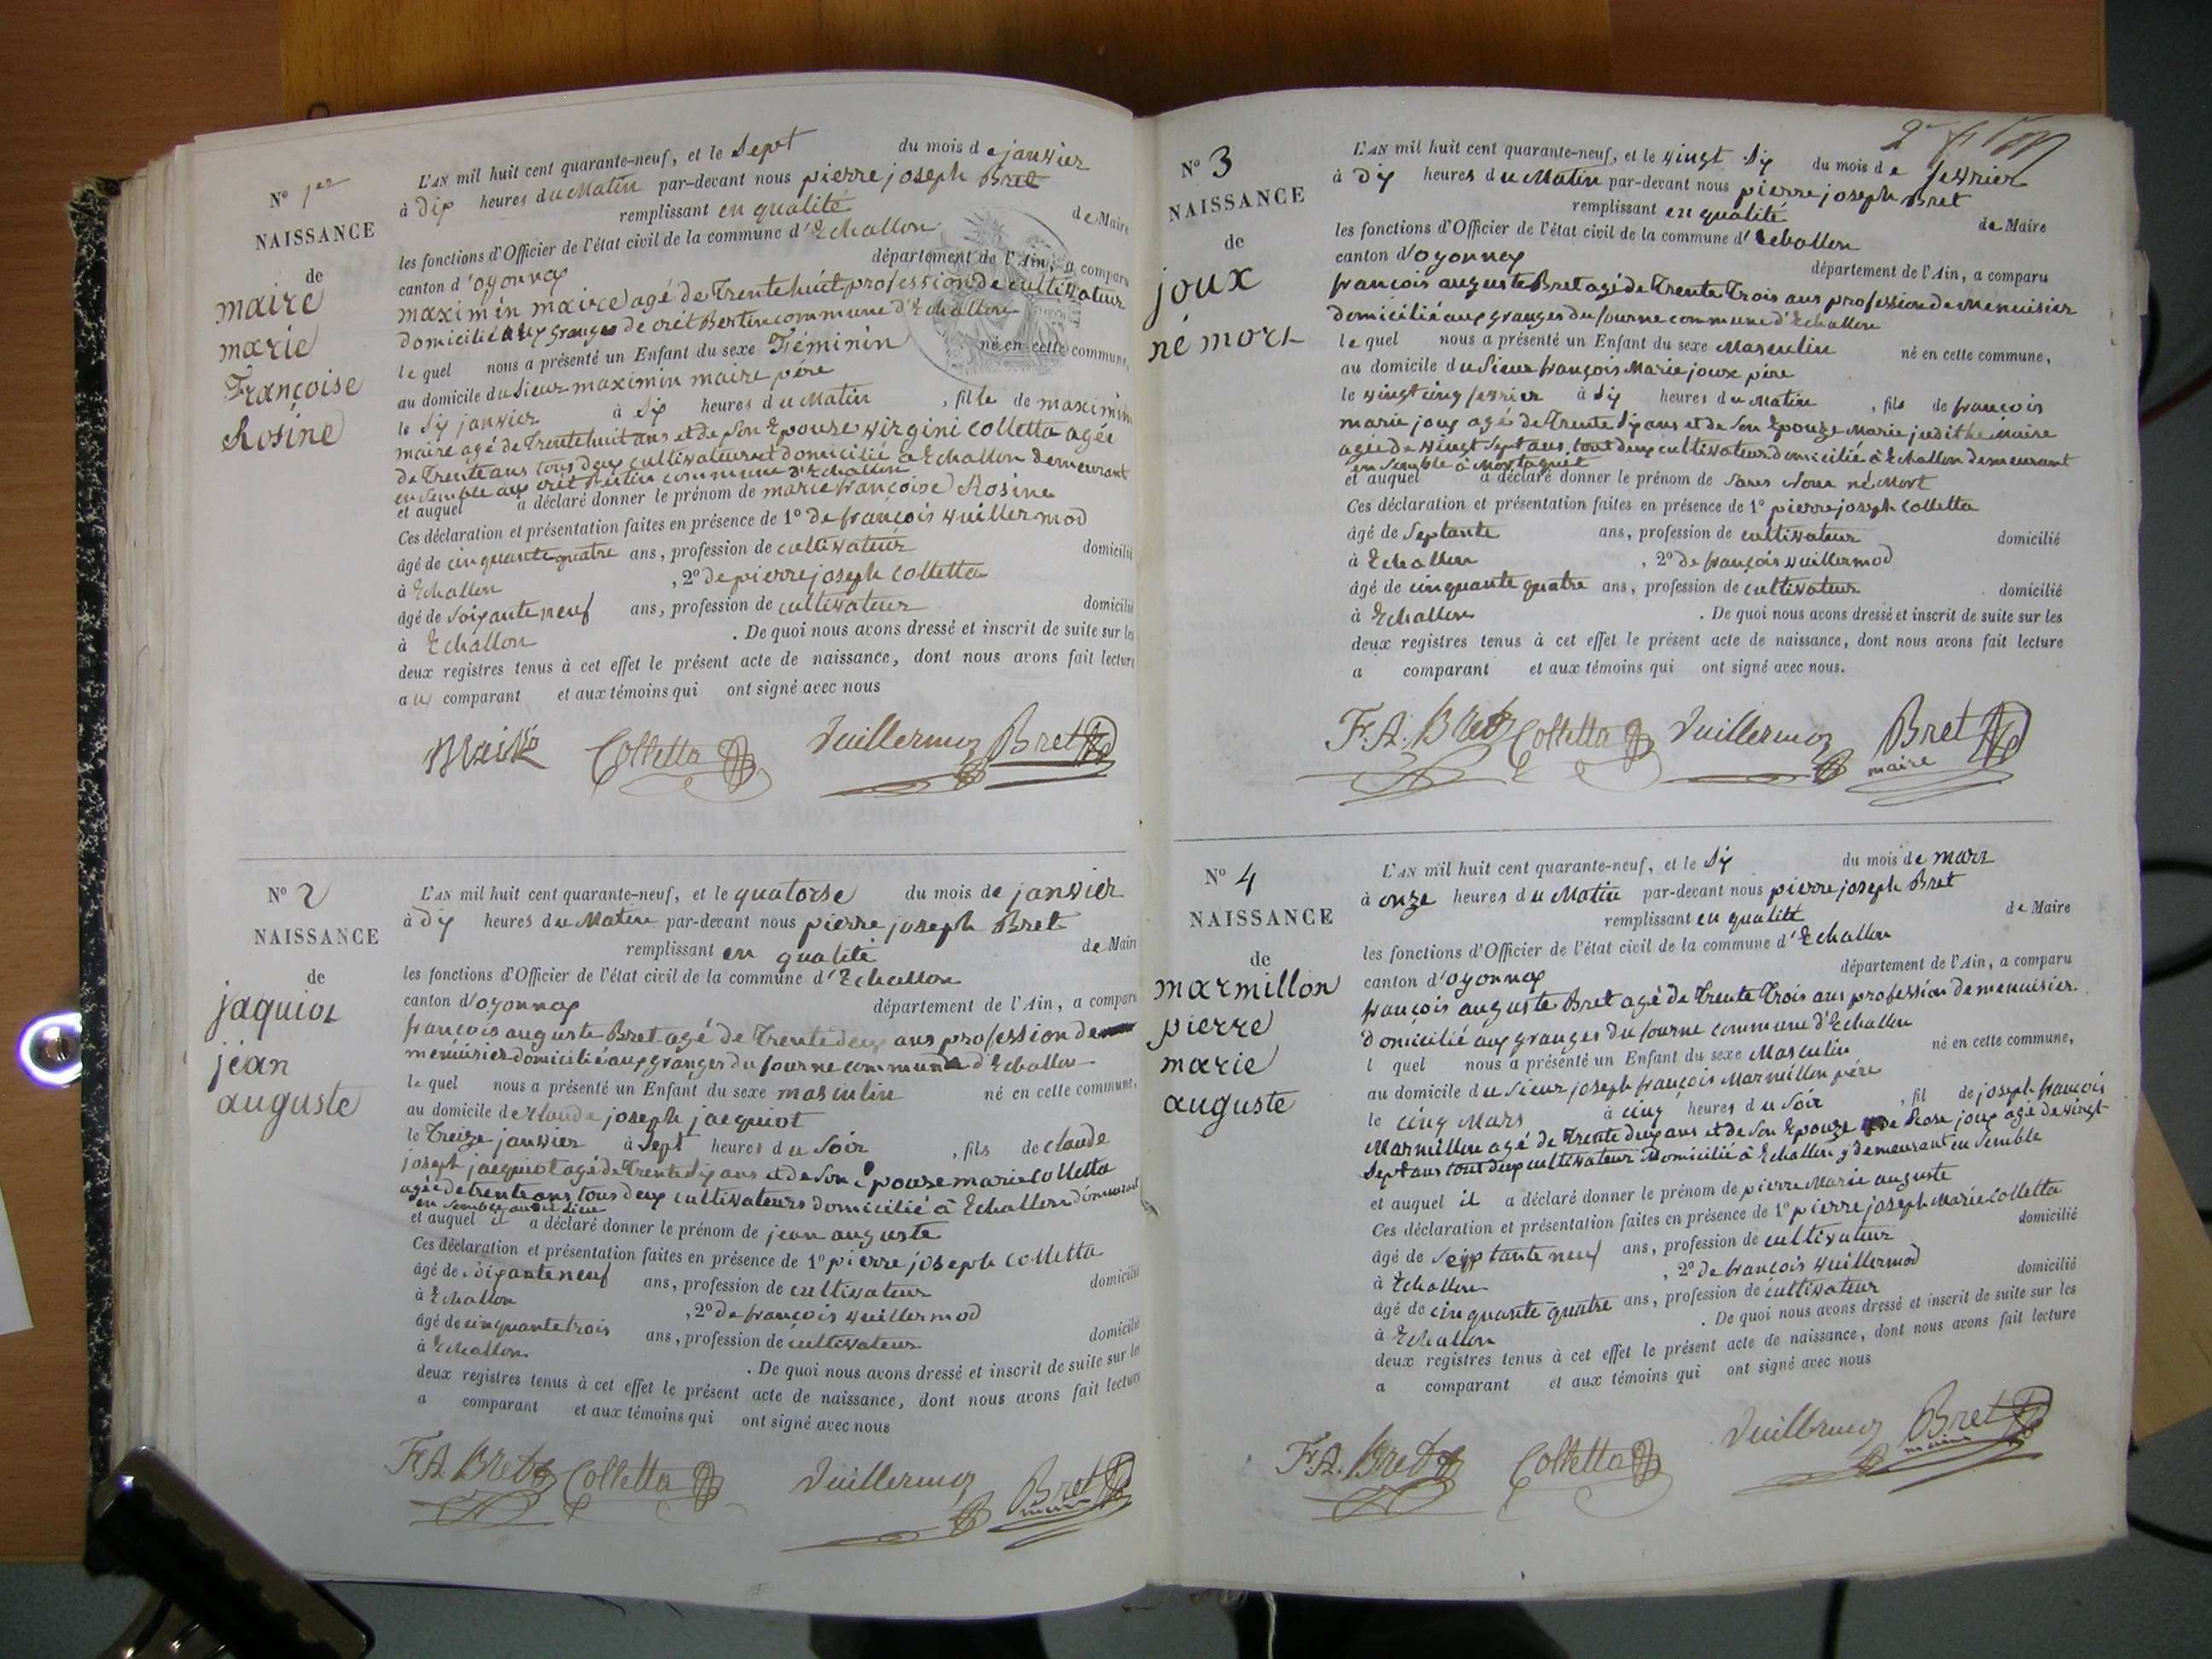 N° 1er
NAISSANCE
de
maire
marie
Françoise
Rosine
L'AN mil huit cent quarante-neuf, et le Sept du mois de janvier
à dix heures du Matin par-devant nous pierre joseph Bret
remplissant en qualité de Maire
les fonctions d'Officier de l'état civil de la commune d'Echallon
canton d'oyonnax département de l'Ain, a comparu
maximin maire agé de Trente huit profession de cultivateur
domicilié aux granges de crêt Bertin commune d'Echallon
le quel nous a présenté un Enfant du sexe Féminin né en cette commune,
au domicile du Sieur maximin maire père
le Six janvier à Six heures du Matin , fille de maximin
maire agé de Trente huit ans et de Son Epouze virgini Colletta agée
de Trente ans tous deux cultivateurs et domicilié a Echallon demeurant
ensemble aux crêt Bertin commune d'Echallon
et auquel a déclaré donner le prénom de marie françoise Rosine
Ces déclaration et présentation faites en présence de 1° de françois vuillermod
âgé de cinquante quatre ans, profession de cultivateur domicilié
à Echallon , 2° de pierre joseph Colletta
âgé de Soixante neuf ans, profession de cultivateur domicilié
à Echallon . De quoi nous avons dressé et inscrit de suite sur les
deux registres tenus à cet effet le présent acte de naissance, dont nous avons fait lecture
au comparant et aux témoins qui ont signé avec nous
Maire Colletta Vuillermoz Bret
N° 2
NAISSANCE
de
jaquiot
jean
auguste
L'AN mil huit cent quarante-neuf, et le quatorse du mois de janvier
à dix heures du Matin par-devant nous pierre joseph Bret
remplissant en qualité de Maire
les fonctions d'Officier de l'état civil de la commune d'Echallon
canton d'oyonnax département de l'Ain, a comparu
françois auguste Bret agé de Trente deux ans profession de
menuisier domicilié aux granges du fourne commune d'Echallon
le quel nous a présenté un Enfant du sexe masculin né en cette commune,
au domicile de Claude joseph jacquiot
le Treize janvier à Sept heures du Soir , fils de claude
joseph jacquiot agé de Trente Six ans et de Son Epouse marie Colletta
agée de trente ans tous deux cultivateurs domicilié à Echallon demeurant
en Semble au dit lieu
et auquel il a déclaré donner le prénom de jean auguste
Ces déclaration et présentation faites en présence de 1° pierre joseph Colletta
âgé de Soixante neuf ans, profession de cultivateur domicilié
à Echallon , 2° de françois vuillermod
âgé de cinquante trois ans, profession de cultivateur domicilié
à Echallon . De quoi nous avons dressé et inscrit de suite sur les
deux registres tenus à cet effet le présent acte de naissance, dont nous avons fait lecture
a comparant et aux témoins qui ont signé avec nous
F. A. Bret Colletta Vuillermoz Bret maire
N° 3
NAISSANCE
de
joux
né mort
L'AN mil huit cent quarante-neuf, et le vingt Six du mois de fevrier
à dix heures du Matin par-devant nous pierre joseph Bret
remplissant en qualité de Maire
les fonctions d'Officier de l'état civil de la commune d'Echallon
canton d'oyonnax département de l'Ain, a comparu
françois auguste Bret agé de Trente Trois ans profession de Menuisier
domicilié aux granges du fourne commune d'Echallon
le quel nous a présenté un Enfant du sexe Masculin né en cette commune,
au domicile du Sieur françois Marie joux père
le vingt cinq fevrier à Six heures du Matin , fils de françois
marie joux agé de Trente Six ans et de Son Epouze Marie judithe Maire
agée de vingt Sept ans tout deux cultivateurs domicilié à Echallon demeurant
en Semble à Mortaquet
et auquel a déclaré donner le prénom de Sans Nom né Mort
Ces déclaration et présentation faites en présence de 1° pierre joseph Colletta
âgé de Septante ans, profession de cultivateur domicilié
à Echallon , 2° de françois vuillermod
âgé de cinquante quatre ans, profession de cultivateur domicilié
à Echallon . De quoi nous avons dressé et inscrit de suite sur les
deux registres tenus à cet effet le présent acte de naissance, dont nous avons fait lecture
a comparant et aux témoins qui ont signé avec nous.
F. A. Bret Colletta Vuillermoz Bret maire
N° 4
NAISSANCE
de
marmillon
pierre
marie
auguste
L'AN mil huit cent quarante-neuf, et le Six du mois de mars
à onze heures du Matin par-devant nous pierre joseph Bret
remplissant en qualité de Maire
les fonctions d'Officier de l'état civil de la commune d'Echallon
canton d'oyonnax département de l'Ain, a comparu
françois auguste Bret agé de Trente Trois ans profession de menuisier
domicilié aux granges du fourne commune d'Echallon
l quel nous a présenté un Enfant du sexe Masculin né en cette commune,
au domicile du Sieur joseph françois Marmillon père
le cinq Mars à cinq heures du Soir , fil de joseph françois
Marmillon agé de Trente deux ans et de Son Epouze de Rose joux agé de vingt
Sept ans tout deux cultivateur Domicilié à Echallon y demeurant en Semble
et auquel il a déclaré donner le prénom de pierre Marie auguste
Ces déclaration et présentation faites en présence de 1° pierre joseph Marie Colletta
âgé de neuf ans, profession de cultivateur domicilié
à Echallon , 2° de françois vuillermod
âgé de cinquante quatre ans, profession de cultivateur domicilié
à Echallon . De quoi nous avons dressé et inscrit de suite sur les
deux registres tenus à cet effet le présent acte de naissance, dont nous avons fait lecture
a comparant et aux témoins qui ont signé avec nous
F. A. Bret Colletta Vuillermoz Bret maire